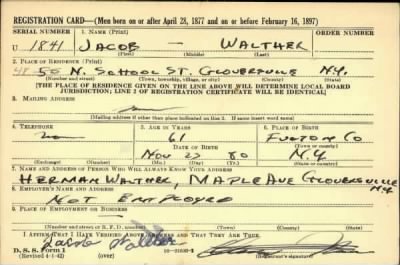 REGISTRATION CARD—(Men born on or after April 28, 1877 and on or before February 16, 1897)
SERIAL NUMBER 1. NAME (Print) ORDER NUMBER
U 1841 JACOB - WALTHER
(First) (Middle) (Last)
2. PLACE OF RESIDENCE (Print)
50 N. SCHOOL ST. GLOVERSVILLE N.Y.
(Number and street) (Town, township, village, or city) (County) (State)
[THE PLACE OF RESIDENCE GIVEN ON THE LINE ABOVE WILL DETERMINE LOCAL BOARD
JURISDICTION; LINE 2 OF REGISTRATION CERTIFICATE WILL BE IDENTICAL]
3. MAILING ADDRESS
[Mailing address if other than place indicated on line 2. If same insert word same]
4. TELEPHONE 5. AGE IN YEARS 6. PLACE OF BIRTH
no 61 FULTON CO
DATE OF BIRTH (Town or county)
NOV 23 80 N.Y
(Exchange) (Number) (Mo.) (Day) (Yr.) (State or country)
7. NAME AND ADDRESS OF PERSON WHO WILL ALWAYS KNOW YOUR ADDRESS
HERMAN WALTHER, MAPLE AVE GLOVERSVILLE
N.Y.
8. EMPLOYER'S NAME AND ADDRESS
NOT EMPLOYED
9. PLACE OF EMPLOYMENT OR BUSINESS
(Number and street or R. F. D. number) (Town) (County) (State)
I AFFIRM THAT I HAVE VERIFIED ABOVE ANSWERS AND THAT THEY ARE TRUE.
Jacob Walther
D. S. S. Form 1
(Revised 4-1-42) (over) (Registrant's signature)